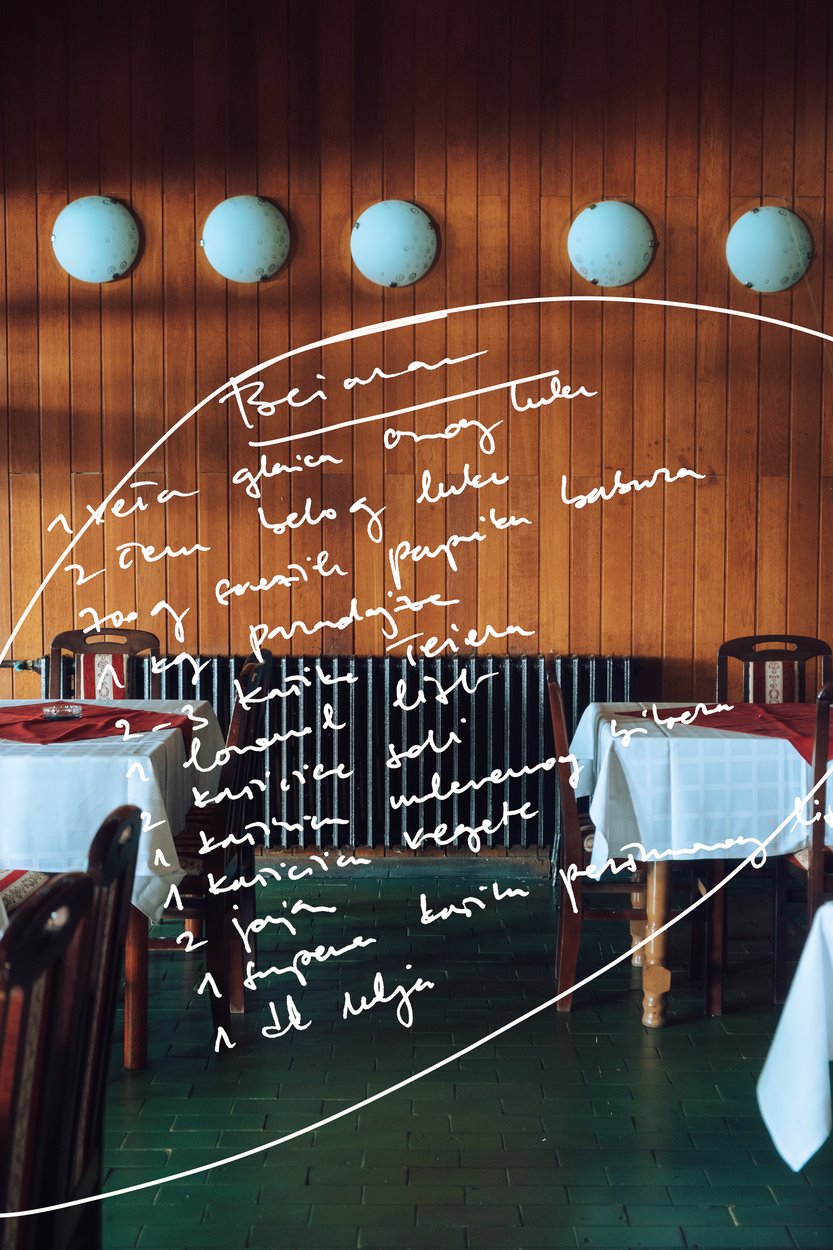 Bećarac
1 veća glavica crnog luka
2 čena belog luka
700 g svežih paprika babura
1 kg paradajza
2-3 kašike šećera
1 lovorov list
2 kašičice soli
1 kašičica mlevenog bibera
1 kašičica vegete
2 jaja
1 supena kašika peršunovog lis
1 dl ulja